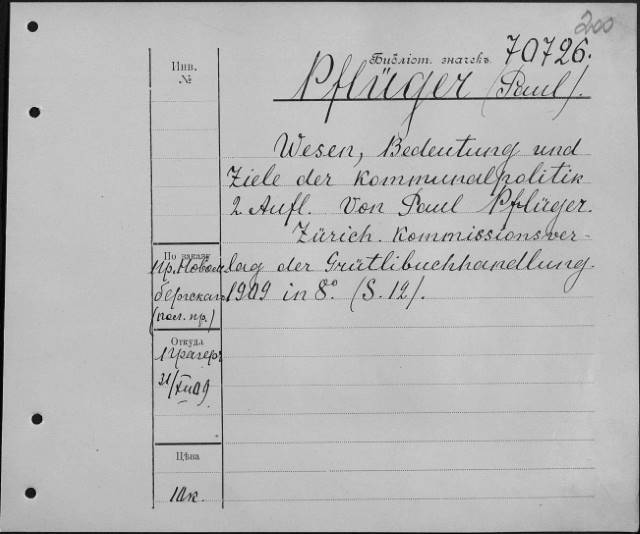 200
Инв.
№
Библіот. значекъ 70726.
Pflüger (Paul).
Wesen, Bedeutung und
Ziele der Kommunalpolitik
2 Aufl. Von Paul Pflüger.
Zürich. Kommissionsver-
lag der Grütlibuchhandlung.
1909 in 8º. (S. 12).
По заказу
пр.
(пол. пр.)
Откуда
31/XII 09
Цѣна
10 к.